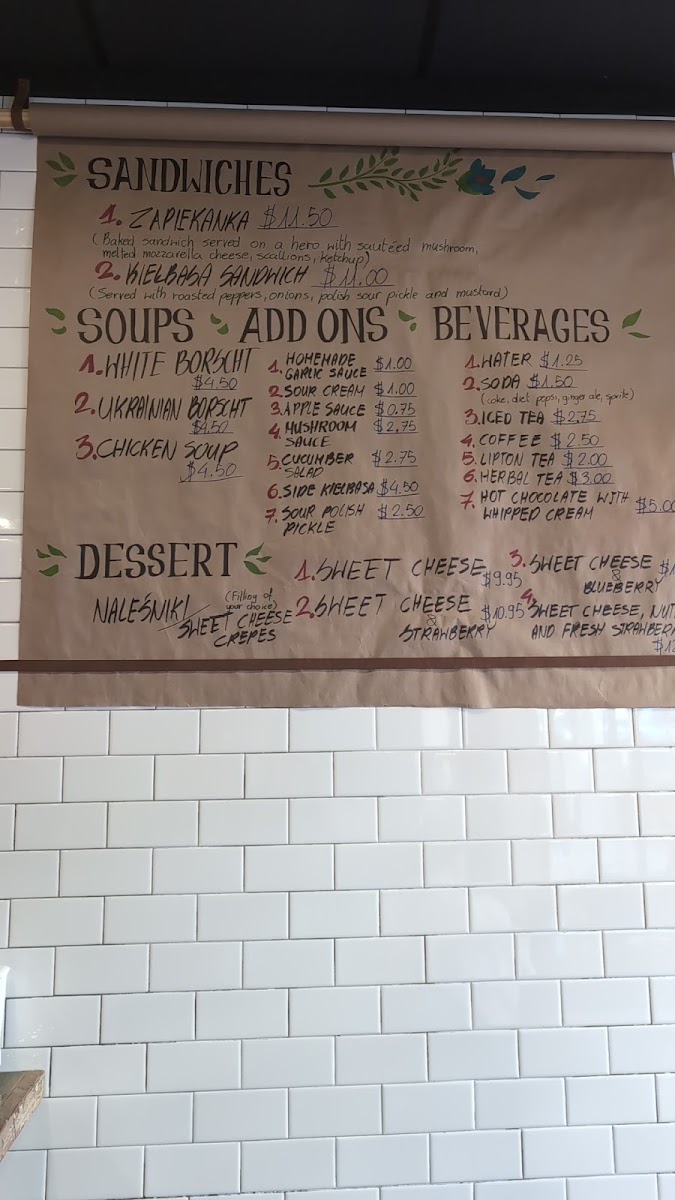 SANDWICHES
1. ZAPIEKANKA $11.50
(Baked sandwich served on a hero with sautéed mushroom,
melted mozzarella cheese, scallions, ketchup)
2. KIELBASA SANDWICH $11.00
(Served with roasted peppers, onions, polish sour pickle and mustard)
SOUPS
1. WHITE BORSCHT
$4.50
2. UKRAINIAN BORSCHT
$4.50
3. CHICKEN SOUP
$4.50
ADD ONS
1. HOMEMADE
GARLIC SAUCE $1.00
2. SOUR CREAM $1.00
3. APPLE SAUCE $0.75
4. MUSHROOM
SAUCE $2.75
5. CUCUMBER
SALAD $2.75
6. SIDE KIELBASA $4.50
7. SOUR POLISH
PICKLE $2.50
BEVERAGES
1. WATER $1.25
2. SODA $1.50
(coke, diet pepsi, ginger ale, sprite)
3. ICED TEA $2.75
4. COFFEE $2.50
5. LIPTON TEA $2.00
6. HERBAL TEA $3.00
7. HOT CHOCOLATE WITH
WHIPPED CREAM $5.00
DESSERT
NALEŚNIKI/
(Filling of
your choice)
SWEET CHEESE
CREPES
1. SWEET CHEESE
$9.95
2. SWEET CHEESE
&
STRAWBERRY $10.95
3. SWEET CHEESE
&
BLUEBERRY
4. SWEET CHEESE,
AND FRESH